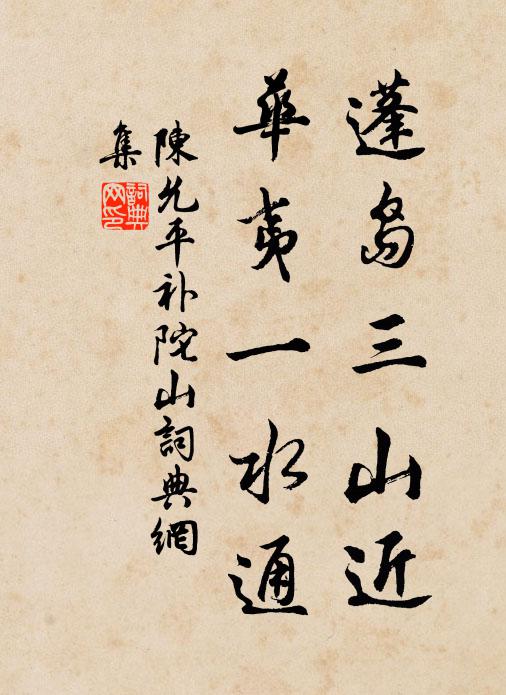 蓬島三山近
華夷一水通
陳允平补陀山詞典網
集
詞典
网印